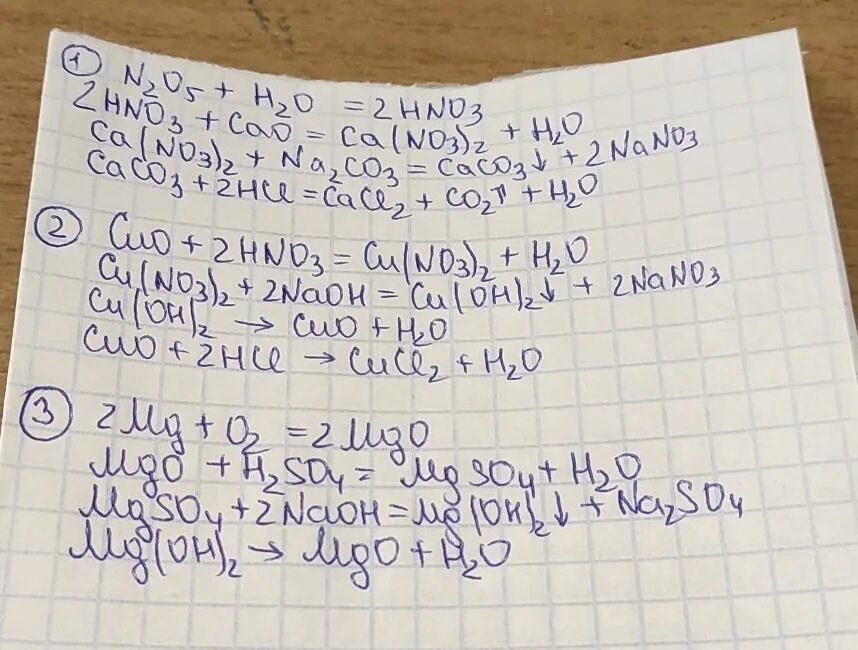 ① N₂O₅ + H₂O = 2HNO₃
2HNO₃ + CaO = Ca(NO₃)₂ + H₂O
Ca(NO₃)₂ + Na₂CO₃ = CaCO₃↓ + 2NaNO₃
CaCO₃ + 2HCl = CaCl₂ + CO₂↑ + H₂O
② CuO + 2HNO₃ = Cu(NO₃)₂ + H₂O
Cu(NO₃)₂ + 2NaOH = Cu(OH)₂↓ + 2NaNO₃
Cu(OH)₂ → CuO + H₂O
CuO + 2HCl → CuCl₂ + H₂O
③ 2Mg + O₂ = 2MgO
MgO + H₂SO₄ = MgSO₄ + H₂O
MgSO₄ + 2NaOH = Mg(OH)₂↓ + Na₂SO₄
Mg(OH)₂ → MgO + H₂O